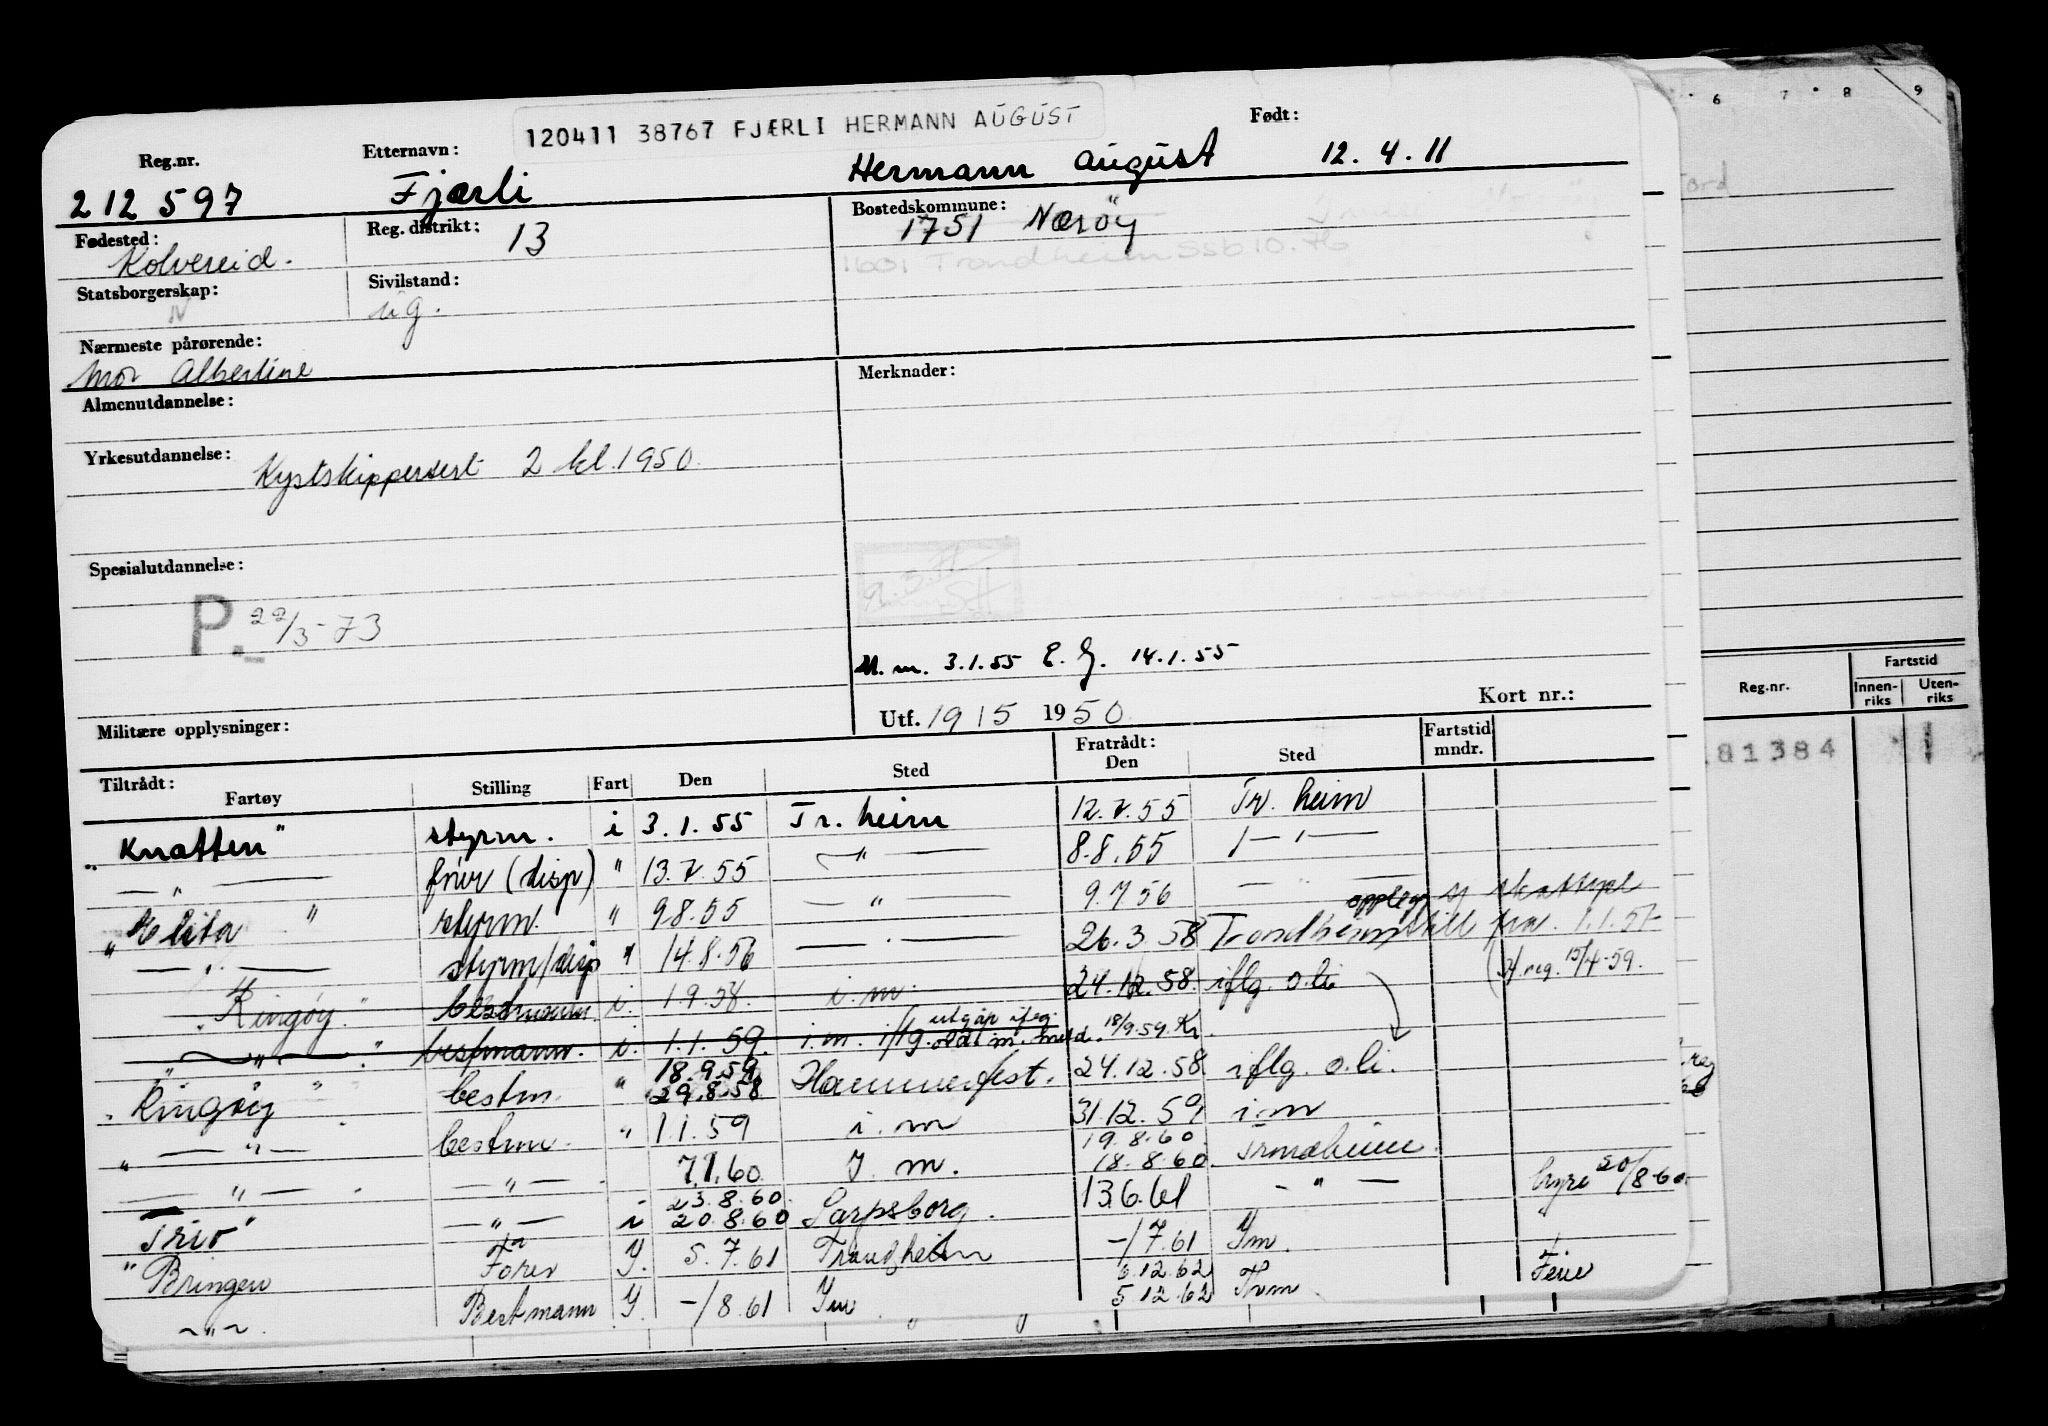 120411 38767 FJÆRLI HERMANN AUGUST
Reg.nr. Etternavn: Født:
212 597 Fjærli Hermann August 12.4.11
Fødested: Reg. distrikt: 13 Bostedskommune:
Kolvereid. 1751 Nærøy
1601 Trondheim ssb 10.76
Statsborgerskap: Sivilstand:
N ug.
Nærmeste pårørende:
Mor Albertine
Almenutdannelse: Merknader:
Yrkesutdannelse: Kystskippersert 2 kl. 1950.
Spesialutdannelse:
P. 22/3-73
M.m. 3.1.55 E.G. 14.1.55
Militære opplysninger: Utf. 1915 1950 Kort nr.:
Tiltrådt: Fratrådt: Fartstid
Fartøy Stilling Fart Den Sted Den Sted mndr.
"Knatten" styrm. i 3.1.55 Tr.heim 12.7.55 Tr.heim
— " — fører (disp) " 13.7.55 — " — 8.8.55 — " —
"Elita" styrm. " 9.8.55 — " — 9.7.56 — " — opplag
— " — styrm/disp " 14.8.56 — " — 26.3.58 Trondheim till fra 1.1.57
"Ringøy" bestmann. i. 1.9.58. i.m. 24.12.58. iflg. o.li (sf. reg. 15/4-59.
— " — bestmann. i. 1.1.59. i.m. utgår ifлg. m. meld. 18/9.59. Kr.
"Ringøy" bestm. " 18.9.59 29.8.58 Hammerfest. 24.12.58 iflg. o.li.
— " — bestm. " 1.1.59 i.m 31.12.59 i.m
— " — — " — 7.1.60 I.m. 19.8.60. 18.8.60. Trondheim.
"Trio" — " — i 23.8.60. 20.8.60 Sarpsborg. 13.6.61 — " — hyre 20/8-60.
"Bringen Fører I. 5.7.61 Trondheim -/7.61 Im.
— " — Bestmann I. -/8.61 Im 6.12.62 5.12.62 Trm. Ferie
6 7 8 9
Reg.nr. Fartstid
Innen-riks Uten-riks
81384